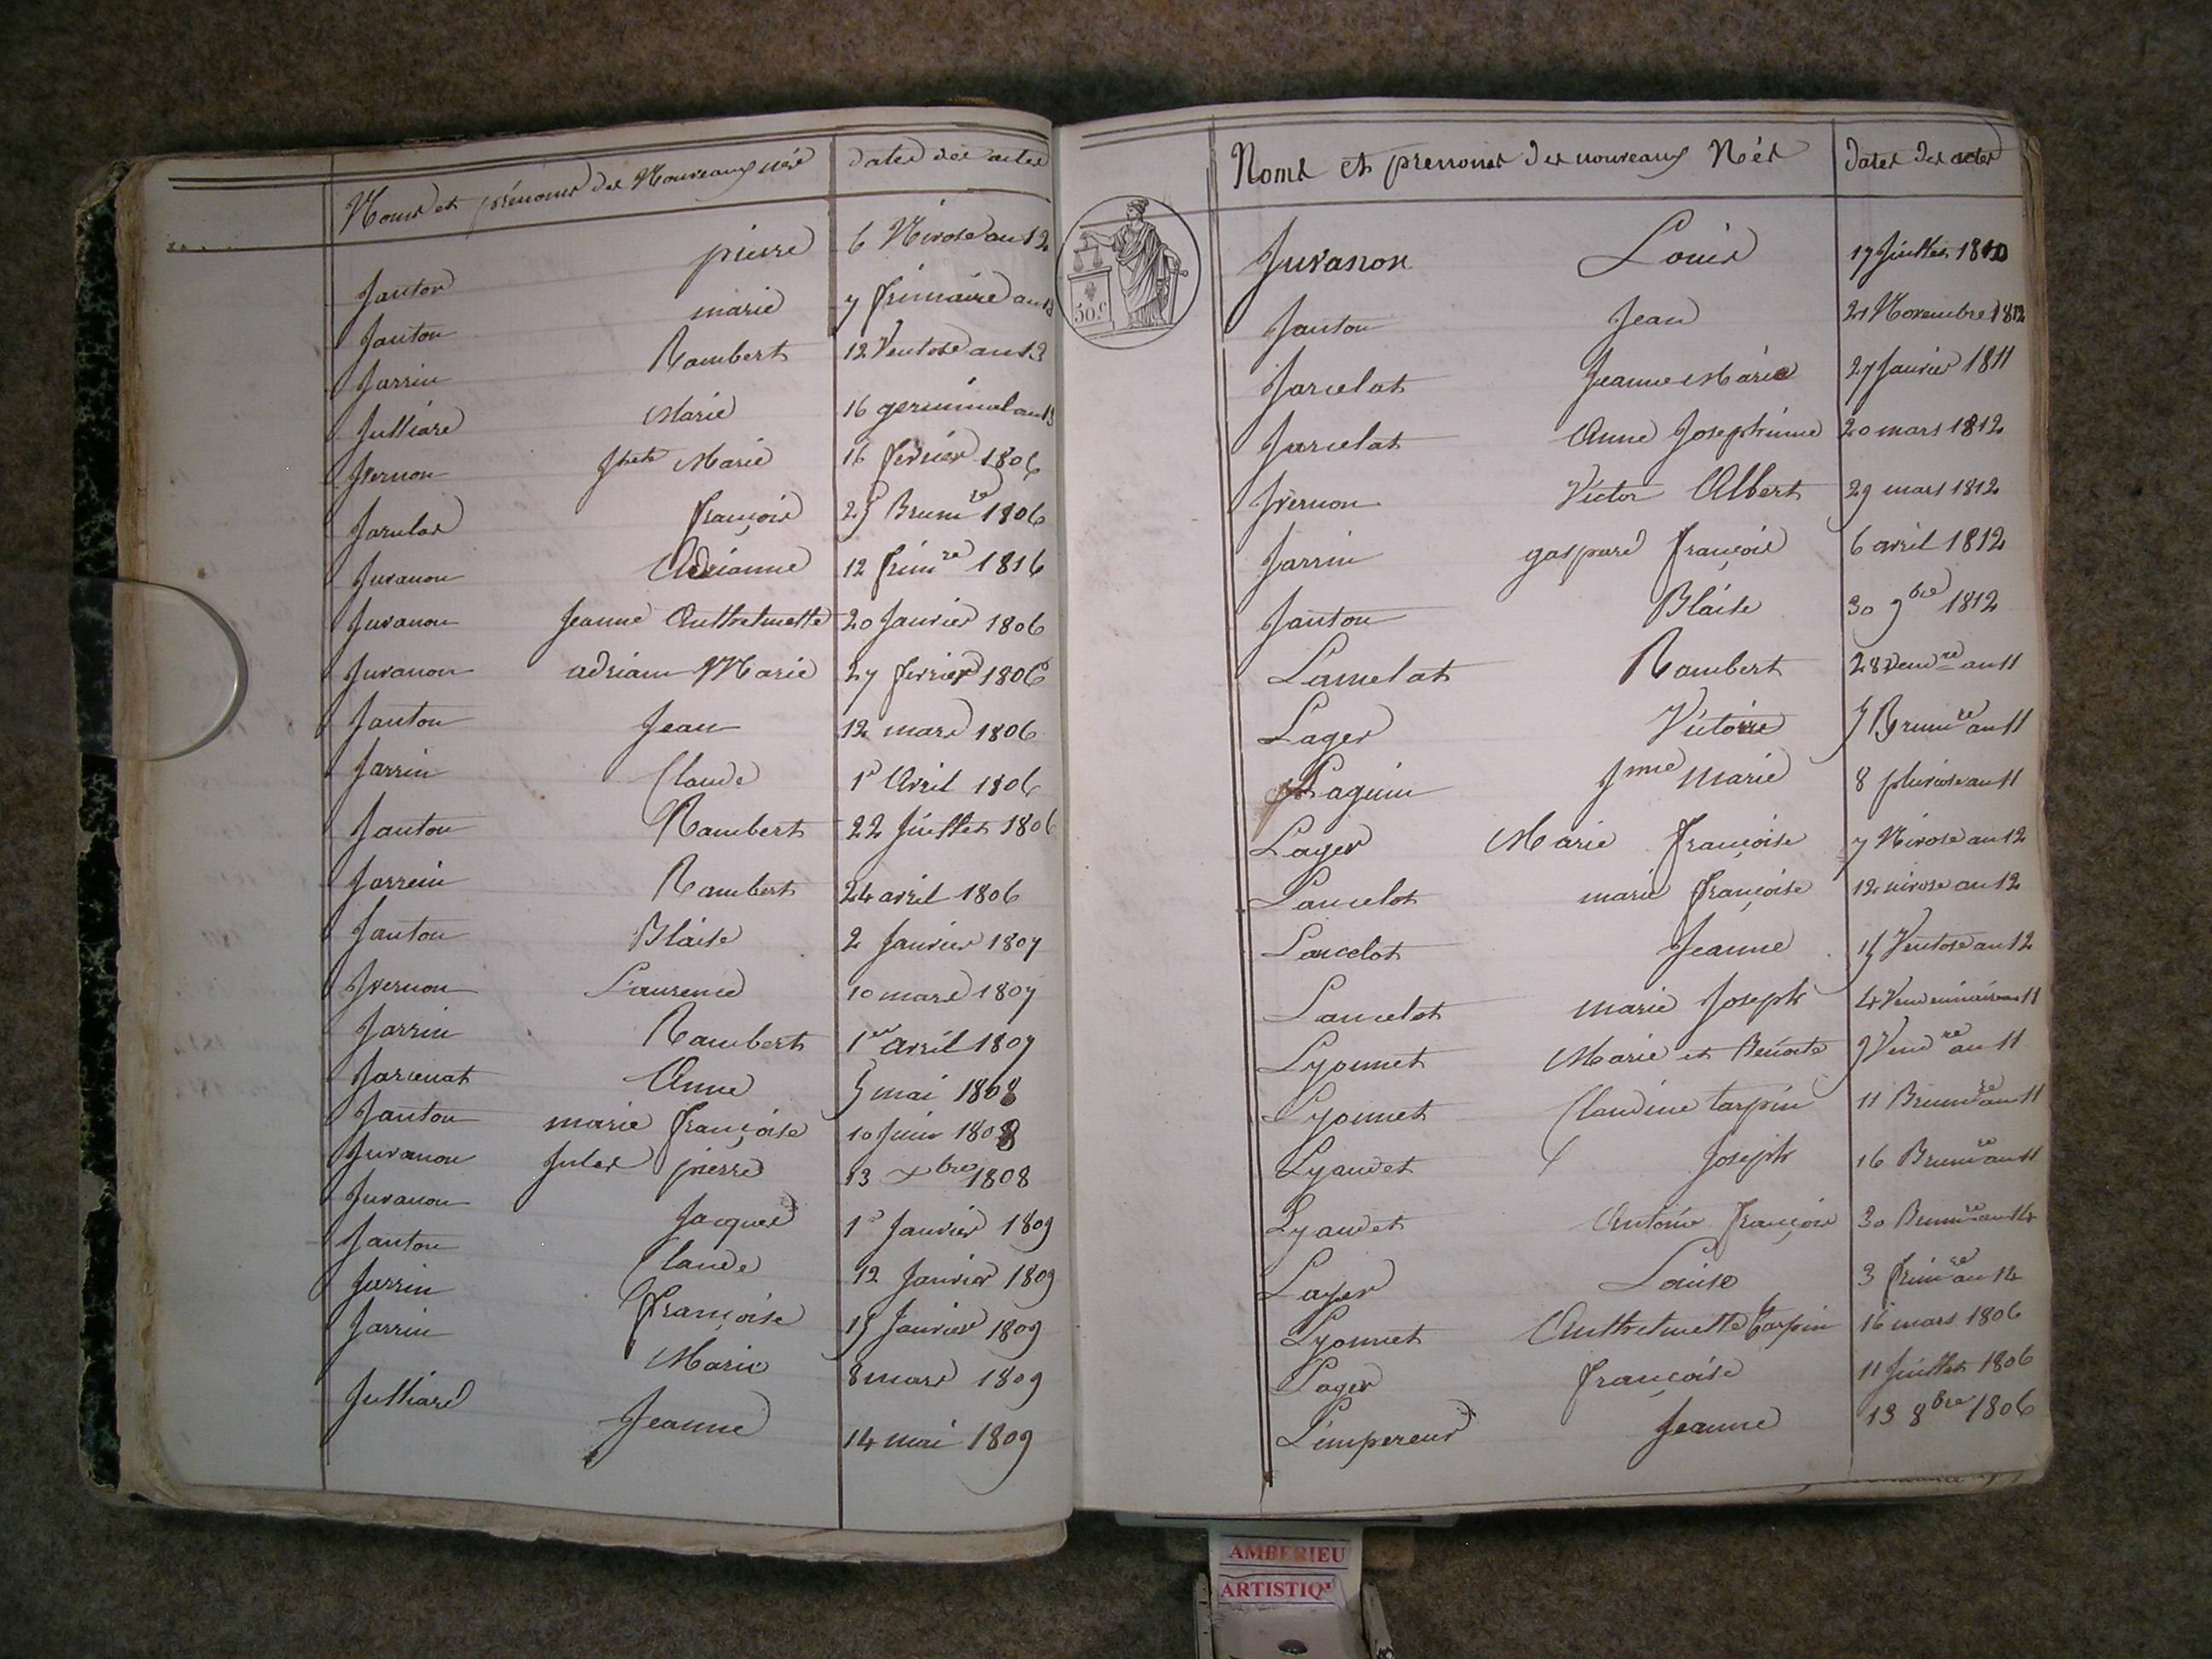 Noms et prénoms des Nouveaux nés dates des actes
Janton pierre 6 Nivose an 12
Janton marie 7 frimaire an 13
Jarrin Rambert 12 Ventose an 13
Julliard Marie 16 germinal an 13
Jvernon Marie 16 fevrier 1806
françois 25 Brumre 1806
Juvanon Adrianne 12 frimre 1806
Juvanon Jeanne Anthelmette 20 Janvier 1806
Juvanon adrian Marie 27 fevrier 1806
Janton Jean 12 mars 1806
Jarrin Claude 1r Avril 1806
Janton Rambert 22 Juillet 1806
Jarrein Rambert 24 avril 1806
Janton Blaise 2 Janvier 1807
Jvernon Laurence 10 mars 1807
Jarrin Rambert 1er avril 1807
Anne 5 mai 1808
Janton marie françoise 10 Juin 1808
Juvanon Jules pierre 13 xbre 1808
Juvanon Jacques 1r Janvier 1809
Janton Claude 12 Janvier 1809
Jarrin françoise 15 Janvier 1809
Jarrin Marie 8 mars 1809
Julliard Jeanne 14 mai 1809
Noms et prenoms des nouveaux Nés dates des actes
50 c
Juvanon Louis 17 Juillet 1810
Janton Jean 21 Novembre
Jarcelat Jeanne Marie 27 Janvier 1811
Jarcelat Anne Josephinne 20 mars 1812
Jvernon Victor Albert 29 mars 1812
Jarrin gaspard françois 6 avril 1812
Janton Blaise 30 9bre 1812
Lamelat Rambert 28 vendre an 11
Lager Victoire 5 Brumre an 11
Laguin Jnne Marie 8 pluviose an 11
Lager Marie françoise 7 Nivose an 12
Lancelot marie françoise 12 nivose an 12
Lancelot Jeanne 15 Ventose an 12
Lancelot marie Joseph 4 Vendemiaire an 11
Lyonnet Marie et Benoite 9 Vendre an 11
Lyonnet Claudine tarpin 11 Brumre an 11
Lyaudet Joseph 16 Brumre an 11
Lyaudet Antoine françois 30 Brumre an 14
Lager Louise 3 frimre an 14
Lyonnet Anthelmette tarpin 16 mars 1806
Lager françoise 11 Juillet 1806
L'empereur Jeanne 13 8bre 1806
AMBERIEU
ARTISTIQ